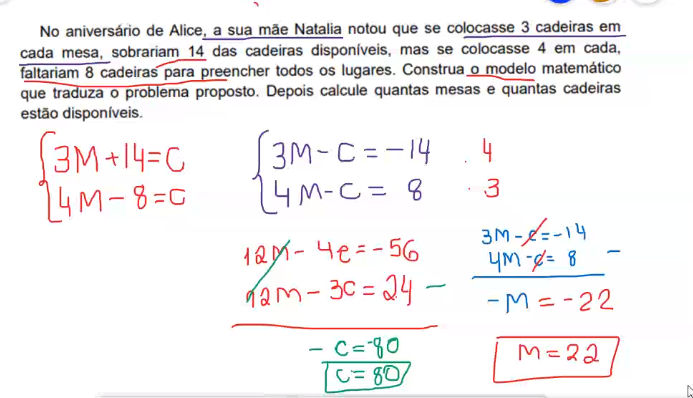 No aniversário de Alice, a sua mãe Natalia notou que se colocasse 3 cadeiras em
cada mesa, sobrariam 14 das cadeiras disponíveis, mas se colocasse 4 em cada,
faltariam 8 cadeiras para preencher todos os lugares. Construa o modelo matemático
que traduza o problema proposto. Depois calcule quantas mesas e quantas cadeiras
estão disponíveis.
3M+14=C
4M-8=C
3M-C=-14 .4
4M-C= 8 .3
12M-4C=-56
12M-3C=24 -
-C=-80
C=80
3M-C=-14
4M-C= 8 -
-M=-22
M=22